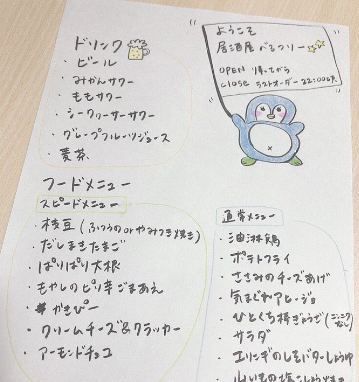 ようこそ
居酒屋 べるつりー
OPEN 帰ってから
close ラストオーダー 22:00
ドリンク
・ビール
・みかんサワー
・ももサワー
・シークワーサーサワー
・グレープフルーツジュース
・麦茶
フードメニュー
スピードメニュー
・枝豆(ふつうのorやみつき焼き)
・だしまきたまご
・ぱりぱり大根
・もやしのピリ辛ごまあえ
・かきぴー
・クリームチーズ&クラッカー
・アーモンドチョコ
通常メニュー
・油淋鶏
・ポテトフライ
・ささみのチーズあげ
・気まぐれアヒージョ
・ひとくち棒ぎょうざ(ニンニクなし)
・サラダ
・エリンギのしそバターしょうゆ